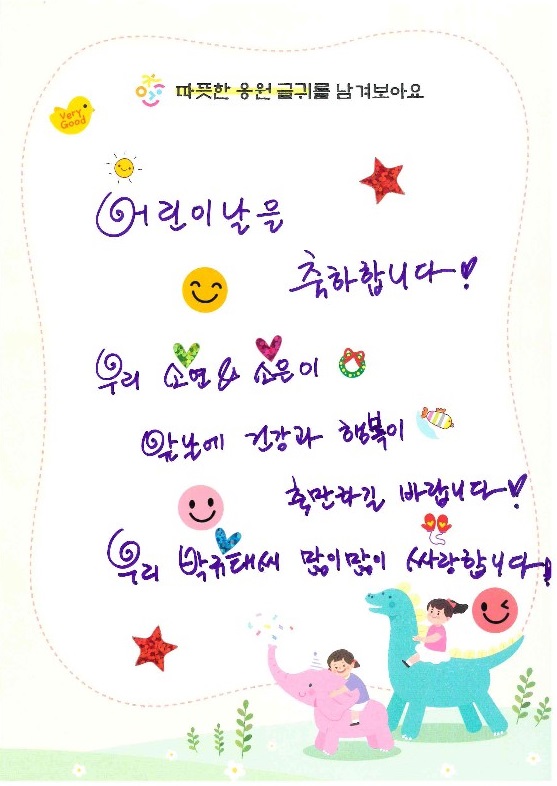 따뜻한 응원 글귀를 남겨보아요
Very Good
어린이날을
축하합니다
우리 소연 & 소은이
앞날에 건강과 행복이
축만하길 바랍니다
우리 박귀태씨 많이많이 싸랑합니다!